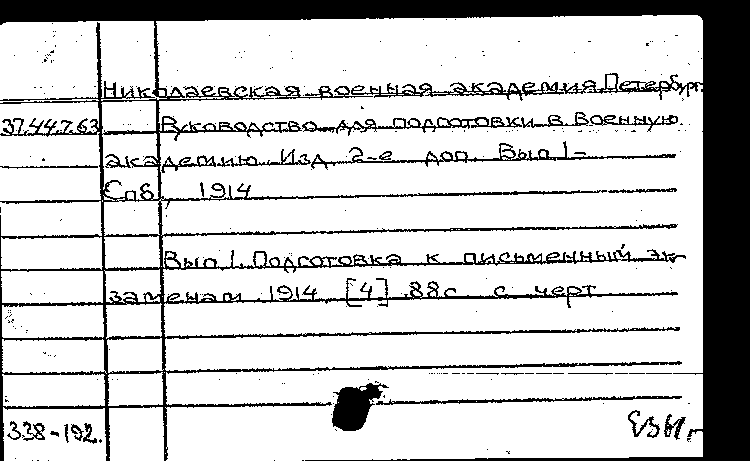 Николаевская военная академия. Петербург.
37.44.7.63 Руководство для подготовки в Военную
академию. Изд. 2-е доп. Вып. 1-
Спб., 1914
Вып. 1. Подготовка к письменный эк-
заменам. 1914. [4] 88с. с черт.
338-192.